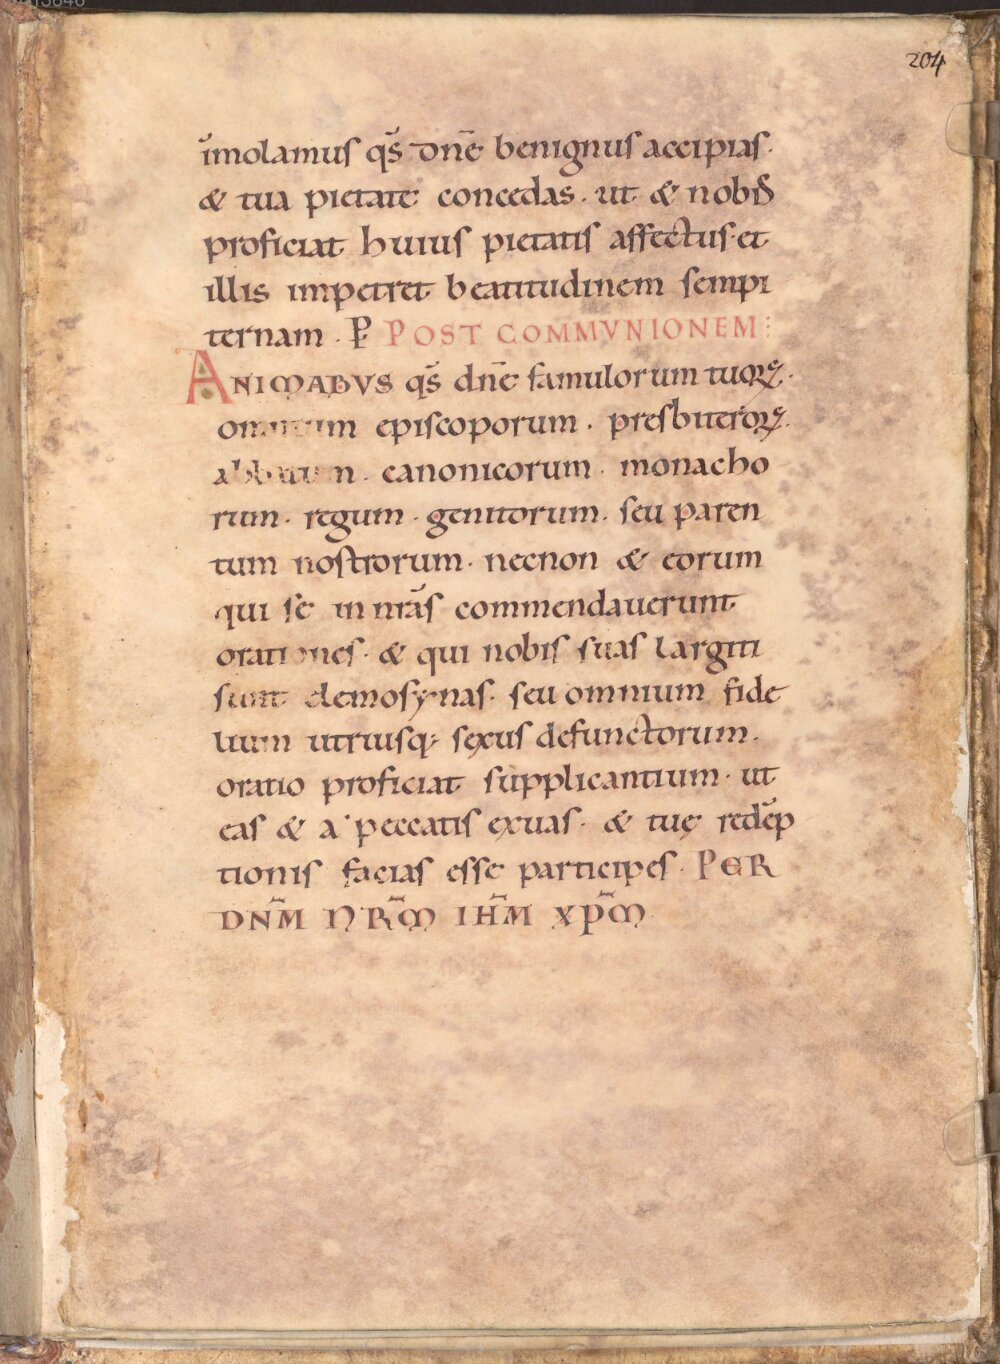 204
īmolamus qs̄ dn̄e benignus accipias·
& tua pietate concedas· ut & nobis
proficiat huius pietatis affectus· et
illis impetret beatitudinem sempi
ternam· P̱ POST COMMVNIONEM:
ANIMABVS qs̄ dn̄e famulorum tuoꝝ·
omnium episcoporum· presbiteroꝝ·
abbatum· canonicorum· monacho
rum· regum· genitorum· seu paren
tum nostrorum· necnon & eorum
qui se in nr̄as commendauerunt
orationes· & qui nobis suas largiti
sunt elemosynas· seu omnium fide
lium utriusq; sexus defunctorum·
oratio proficiat supplicantium· ut
eas & a peccatis exuas· & tuę redēp
tionis facias esse participes· PER
DN̄M NR̄M IH̄M XP̄M